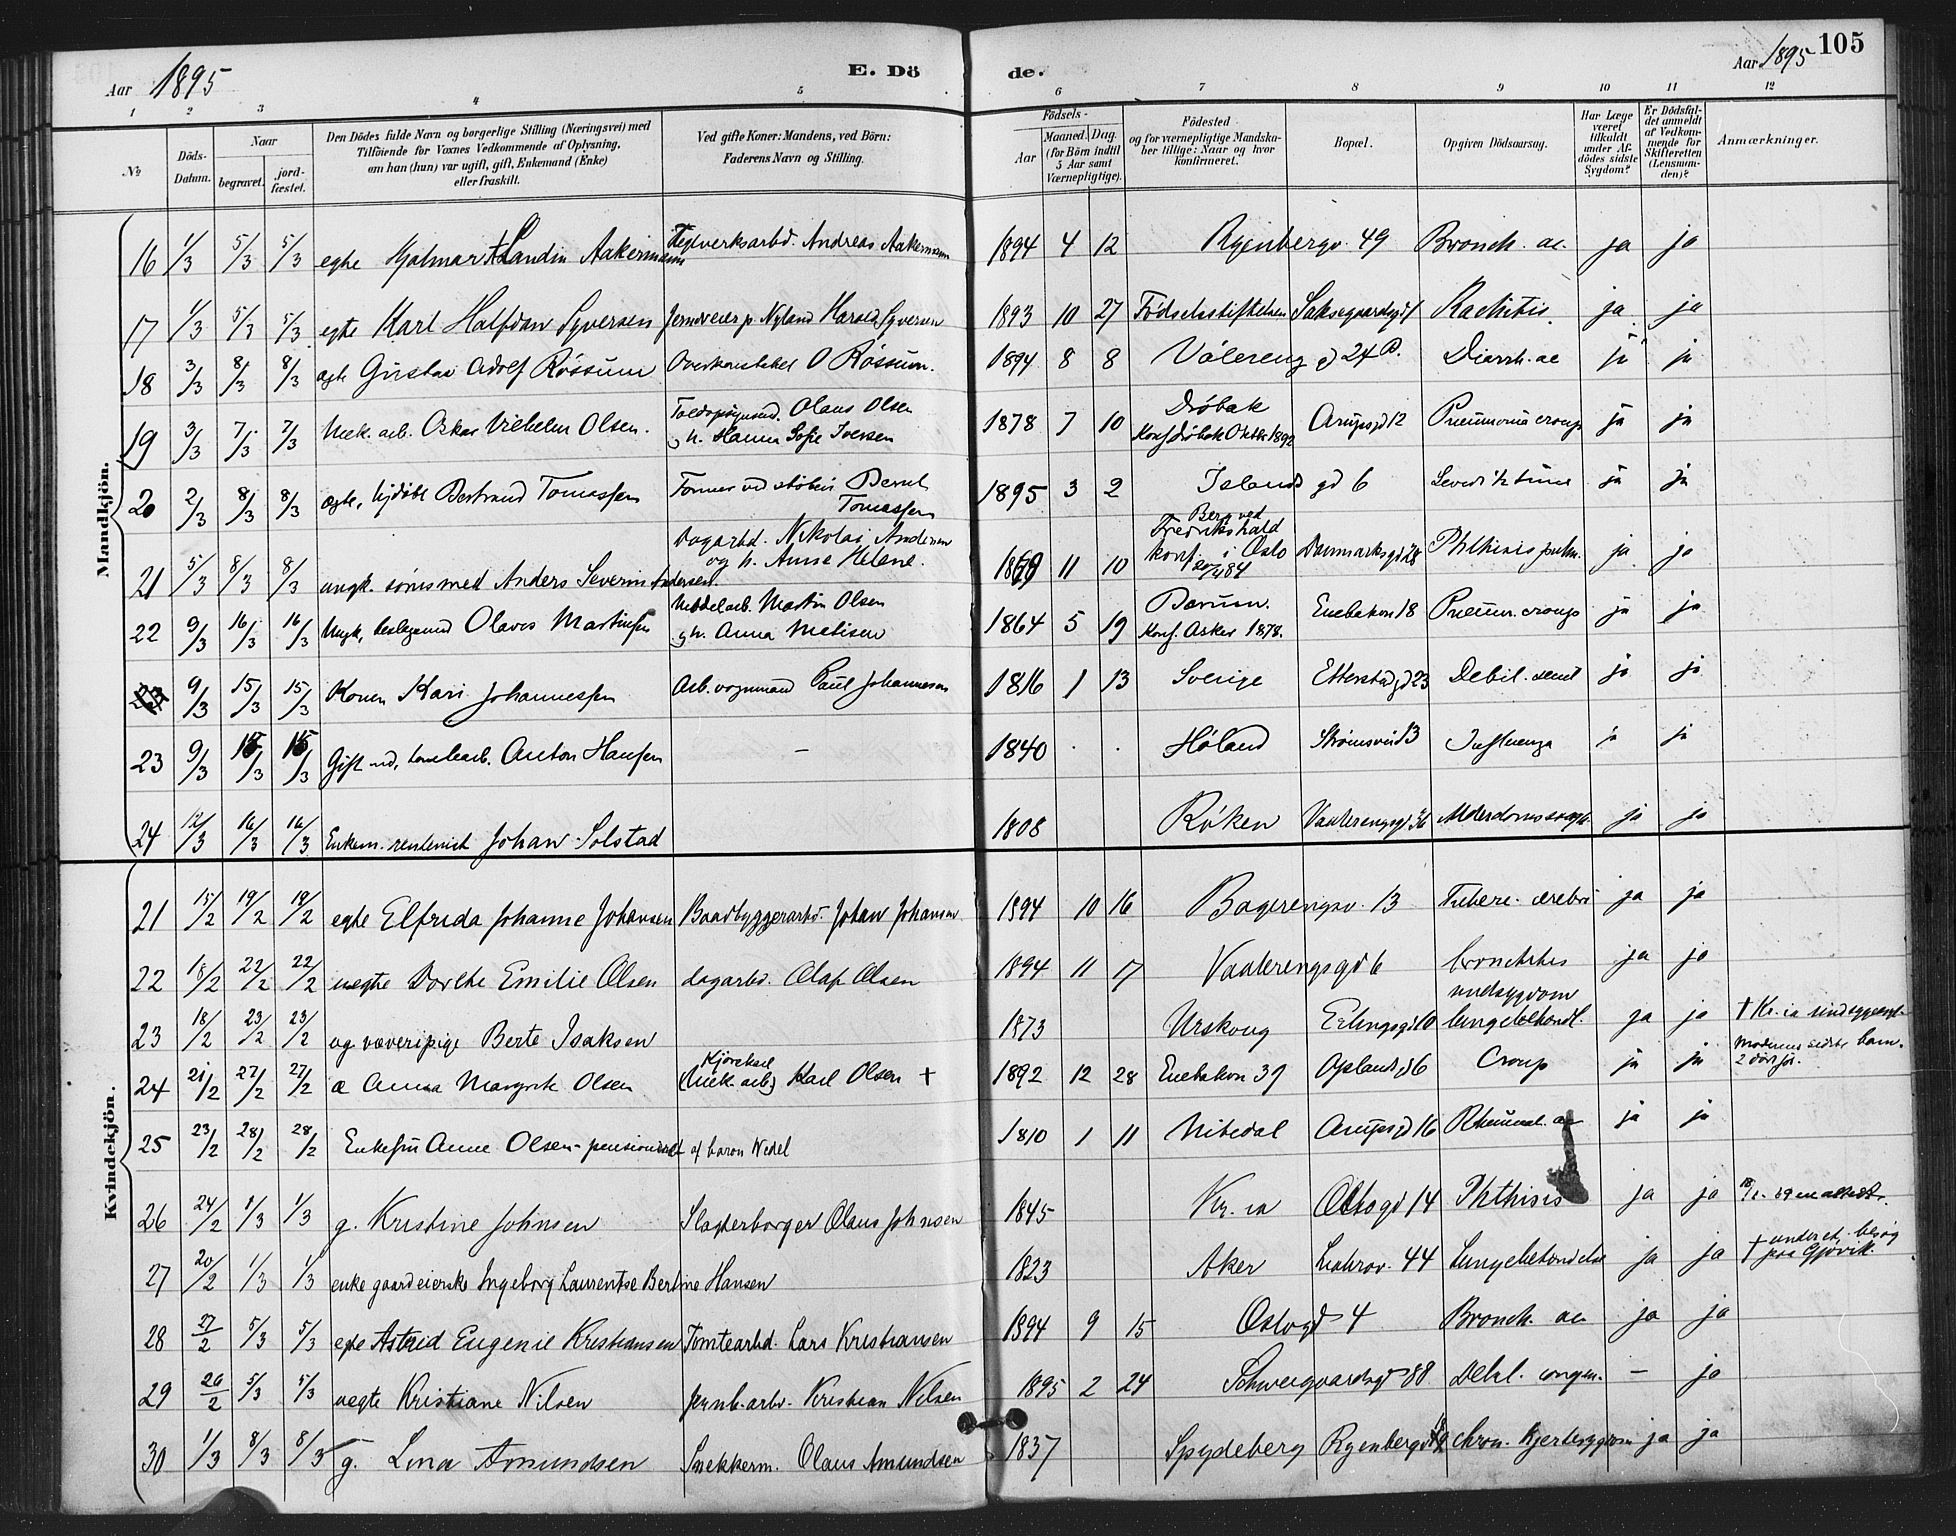 Aar 1895
E. Dö
de.
Aar 1895 105
1 2 3 4 5 6 7 8 9 10 11 12
№
Döds-Datum.
Naar
begravet.
jord-fæstet.
Den Dödes fulde Navn og borgerlige Stilling (Næringsvei) med
Tilföiende for Voxnes Vedkommende af Oplysning,
om han (hun) var ugift, gift, Enkemand (Enke)
eller fraskilt.
Ved gifte Koner: Mandens, ved Börn:
Faderens Navn og Stilling.
Födsels-
Aar
Maaned. Dag.
(for Börn indtil
5 Aar samt
Værnepligtige).
Födested
og for værnepligtige Mandska-
ber tillige: Naar og hvor
konfirmeret.
Bopæl.
Opgiven Dödsaarsag.
Har Læge
været
tilkaldt
under Af-
dödes sidste
Sygdom?
Er Dödsfal-
det anmeldt
af Vedkom-
mende for
Skifteretten
(Lensman-
den)?
Anmærkninger.
Mandkjön.
16 1/3 5/3 5/3 egte Hjalmar Landin Aakermann Teglverksarbd. Andreas Aakermann 1894 4 12 Ryenbergv. 49 Bronch. ac. ja ja
17 1/3 5/3 5/3 egte Karl Halfdan Syversen Jerndreier p Nyland Harald Syversen 1893 10 27 Fødselsstiftelsen Saksegaardsgd 1 Rachitis ja ja
18 3/3 8/3 8/3 ægte Gustav Adolf Róssum Overkonstabel O Róssum. 1894 8 8 Vålereng gd 24 B. Diarrh. ac ja ja
19 3/3 7/3 7/3 Mek. arb. Oskar Vilhelm Olsen. Toldopsynsmd. Olaus Olsen
og h. Hanna Sofie Iversen 1878 7 10 Drøbak
Konf Drøbak Oktbr 1892 Arupsgd 12 Pneumonia croup ja ja
20 2/3 8/3 8/3 ægte, hjdøbt Bertrand Tomassen Former ved støberi Bernt
Tomassen 1895 3 2 Islands gd 6 Leved 1/2 time ja ja
21 5/3 8/3 8/3 ungk. sømsmed Anders Severin Andersen Dagarbd. Nikolai Andersen
og h. Anne Helene. 1869 11 10 Berg ved
Fredrikshald
konf. i Oslo
20/4 84 Danmarksgd 28 Phthisis pulm. ja ja
22 9/3 16/3 16/3 Ungk, beslagsmed Olaves Martinsen Meddelarb. Martin Olsen
og h. Anna Matisen 1864 5 19 Bærum.
Konf. Asker 1878. Enebakvn 18 Pneum. croup ja ja
23 9/3 15/3 15/3 Konen Kari Johannessen Arb. vognmand Paul Johannesen 1816 1 13 Sverige Etterstadgd 23 Debil. senil ja ja
23 9/3 15/3 15/3 Gift md, tomtearb. Anton Hansen — 1840 . . Høland Strømsvei 13 Influenza ja ja
24 12/3 16/3 16/3 Enkem. rentenist Johan Solstad 1808 Røken Vaalerengsgd 36 Alderdomssvagh ja ja
Kvindekjön.
21 15/2 19/2 19/2 egte Elfrida Johanne Johansen Baadbyggerarbd. Johan Johansen 1894 10 16 Bagerengsv. 13 Tuberc. cerebri ja ja
22 18/2 22/2 22/2 uegte Dorthe Emilie Olsen dagarbd. Olaf Olsen 1894 11 17 Vaalerengsgd 6 bronchites ja ja
23 18/2 23/2 23/2 ug væveripige Berte Isaksen 1873 Urskoug Erlingsgd 10 sindsygdom
lungebetændl. ja ja † Kr.ia sindssygeasyl.
24 21/2 27/2 27/2 æ Anna Margrete Olsen Kjørekarl
(Mek. arb) Karl Olsen † 1892 12 28 Enebakvn 39 Oplandsgd 6 Croup ja ja Moderens sidste barn.
25 23/2 28/2 28/2 Enkefru Anne Olsen - pensioneret af baron Wedel 1810 1 11 Nitedal Arupsgd 16 Rheumat. ac ja ja
26 24/2 1/3 1/3 g. Kristine Johnsen Slagterborger Olaus Johnsen 1845 Kr.ia Oslogd 14 Phthisis ja ja
27 20/2 1/3 1/3 enke gaardeierske Ingeborg Laurentse Bertine Hansen 1823 Aker Liabrov. 44 Lungebetændelse ja ja † under et besøg
paa Gjøvik.
28 27/2 5/3 5/3 egte Astrid Eugenie Kristiansen Tomtearbd. Lars Kristiansen 1894 9 15 Oslogd 4 Bronch. ac ja ja
29 26/2 5/3 5/3 uegte Kristiane Nilsen jernb.arbd. Kristian Nilsen 1895 2 24 Schweigaardsgd 88 Debil. congen. — ja
30 1/3 8/3 8/3 g. Lina Amundsen Snekkerm. Olaus Amundsen 1837 Spydeberg Ryenbergv chron. Hjertesygdom ja ja